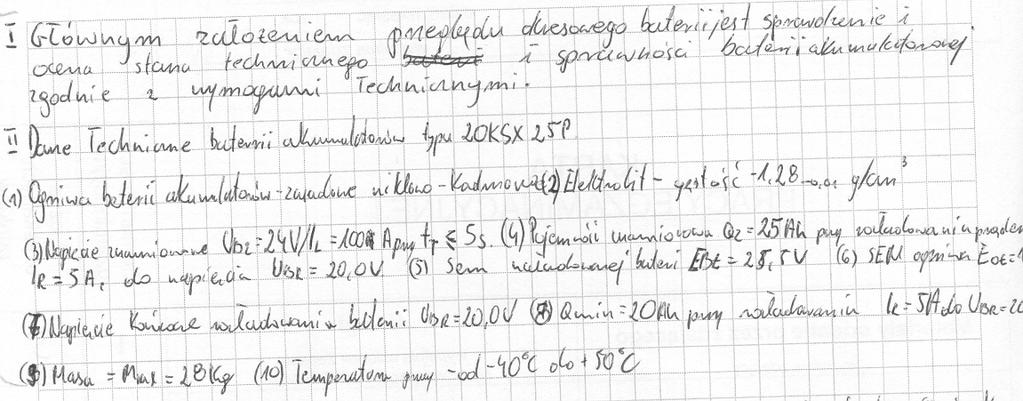 I Głównym założeniem przeglądu okresowego baterii jest sprawdzenie i
ocena stanu technicznego i sprawności baterii akumulatorowej
zgodnie z wymogami Technicznymi.
II Dane Techniczne baterii akumulatorów typu 20KSX 25P
(1) Ogniwa baterii akumulatorów - zasadowe niklowo - Kadmowe (2) Elektrolit - gęstość - 1,28 -0,01 g/cm³
(3) Napięcie znamionowe UBZ = 24V/IL = 100 A przy tr ≤ 5s. (4) Pojemność znamionowa Qz = 25Ah przy rozładowaniu prądem
IR = 5A, do napięcia UBR = 20,0V (5) Sem naładowanej baterii EBt = 25,5V (6) SEM ogniwa Eot =
(7) Napięcie Końcowe rozładowania baterii UBR = 20,0V (8) Qmin = 20Ah przy rozładowaniu IR = 5A do UBR = 20
(9) Masa = Max = 28Kg (10) Temperatura pracy - od -40°C do +50°C